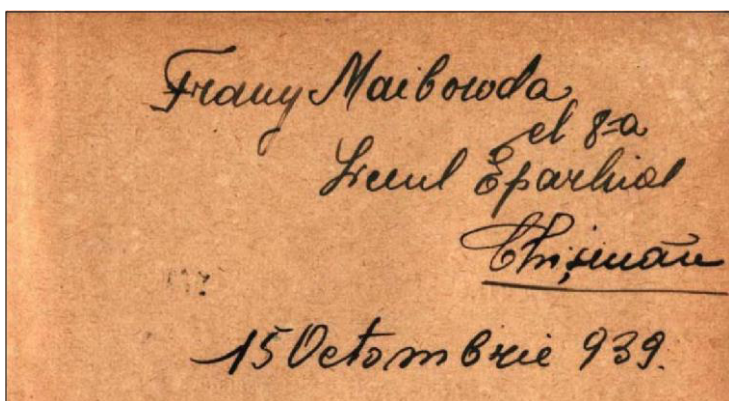 Frany Maiboroda
cl 8-a
Liceul Eparhial
Chișinău
15 Octombrie 939.